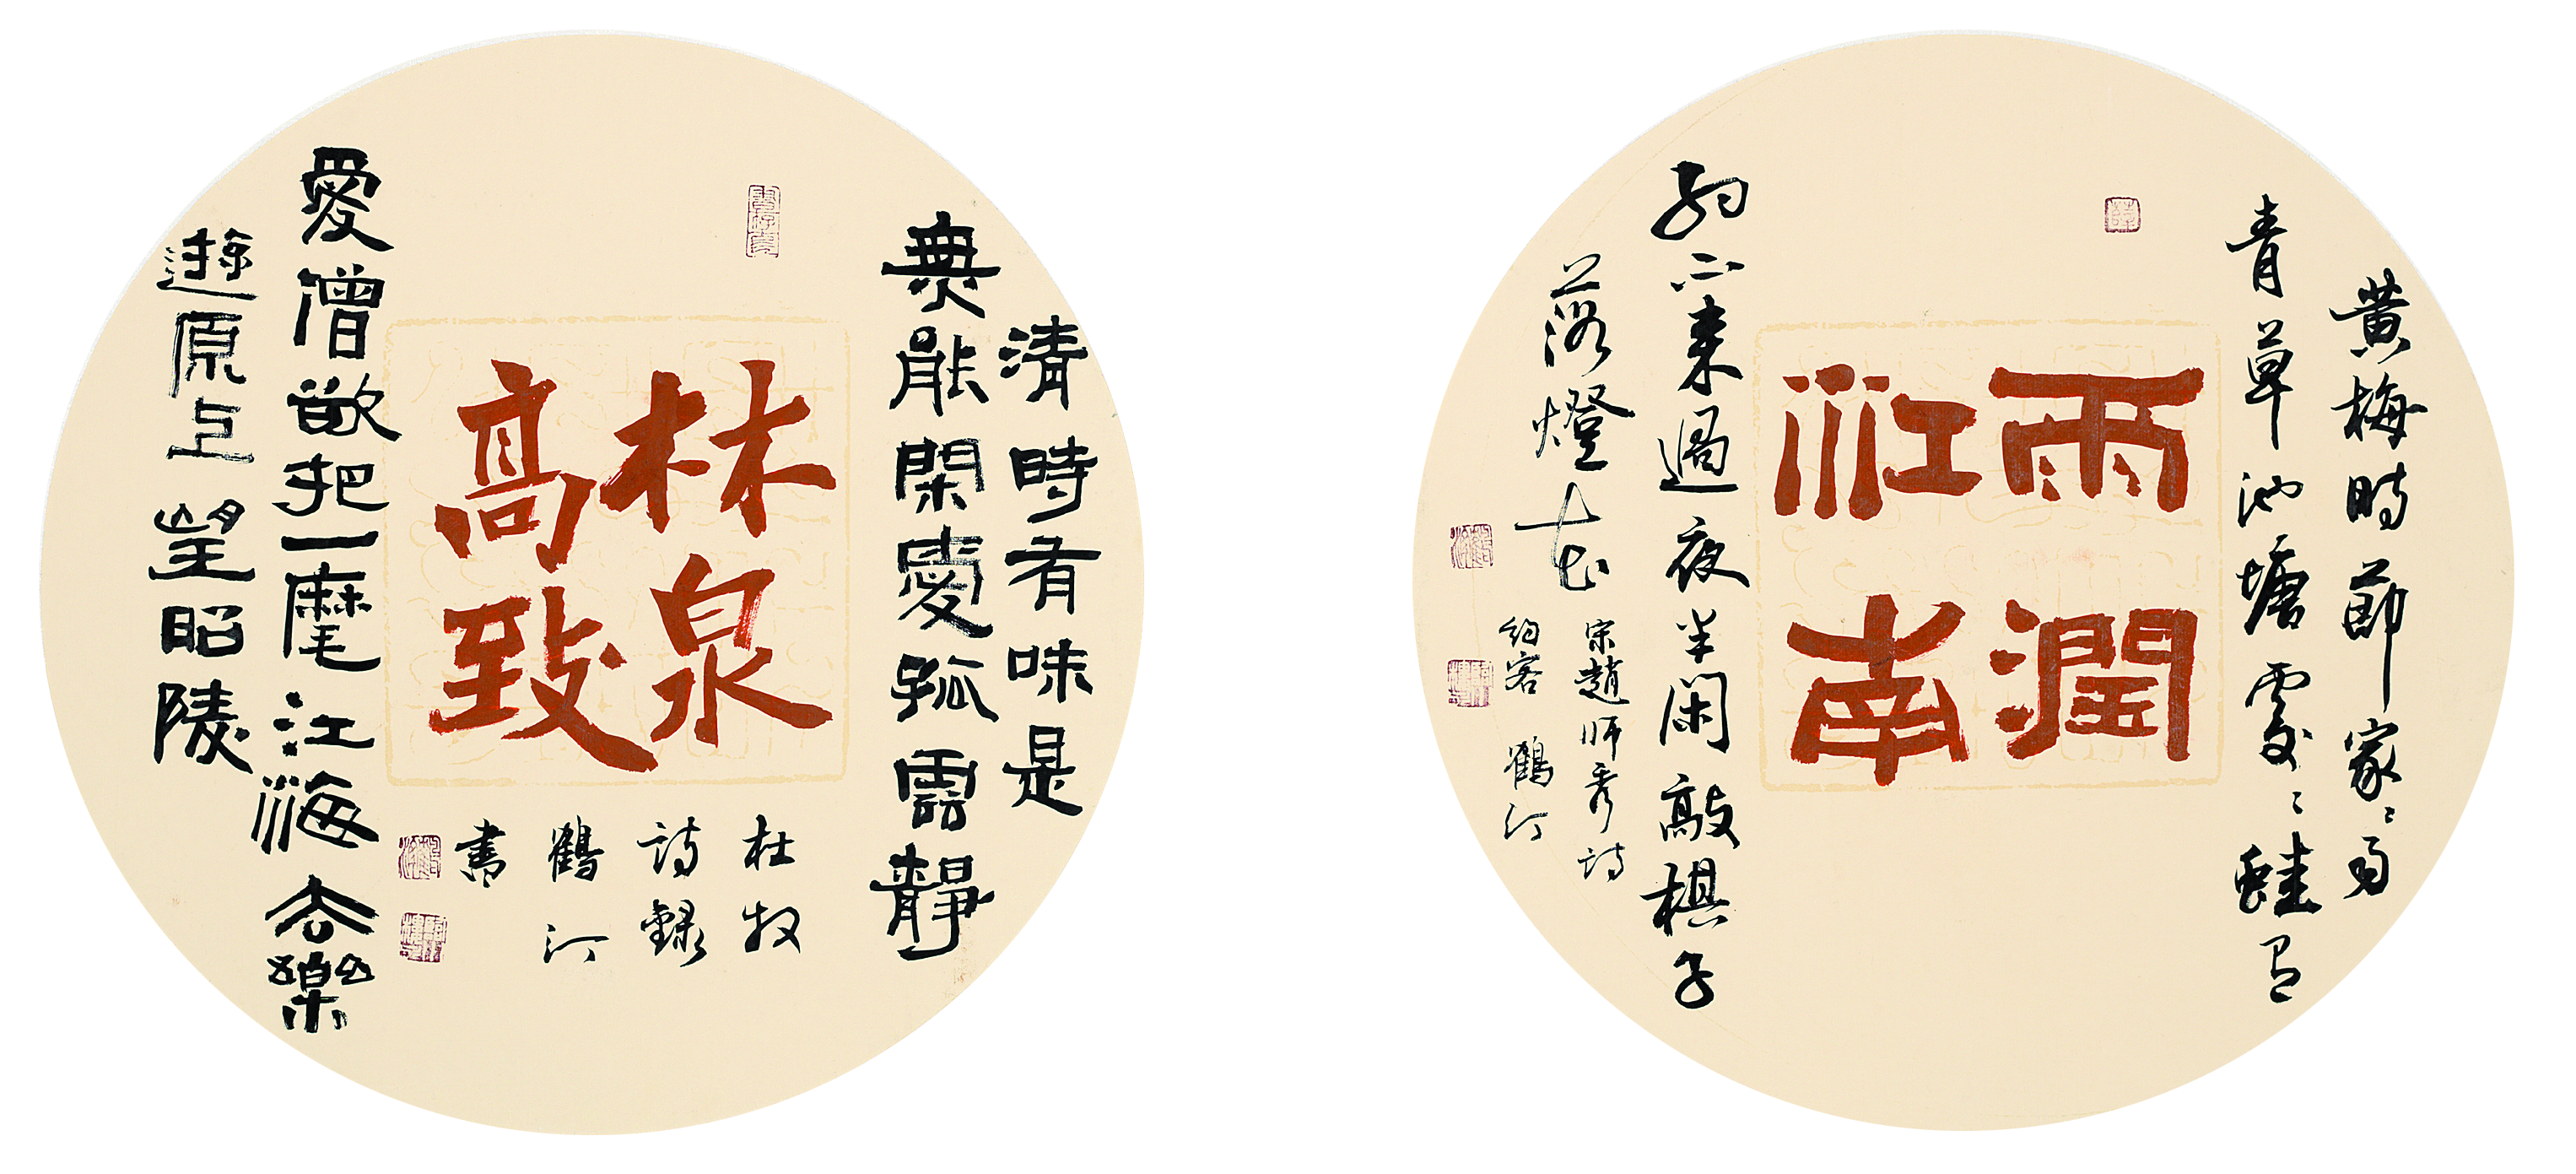 清時有味是
無能閑愛孤雲靜
林泉
高致
愛僧欲把一麾江海去樂
遊原上望昭陵
杜牧
詩錄
鶴汀
書
黃梅時節家〻雨
青草池塘處〻蛙有
雨潤
江南
約不來過夜半閑敲棋子
落燈花
宋趙師秀詩
約客 鶴汀